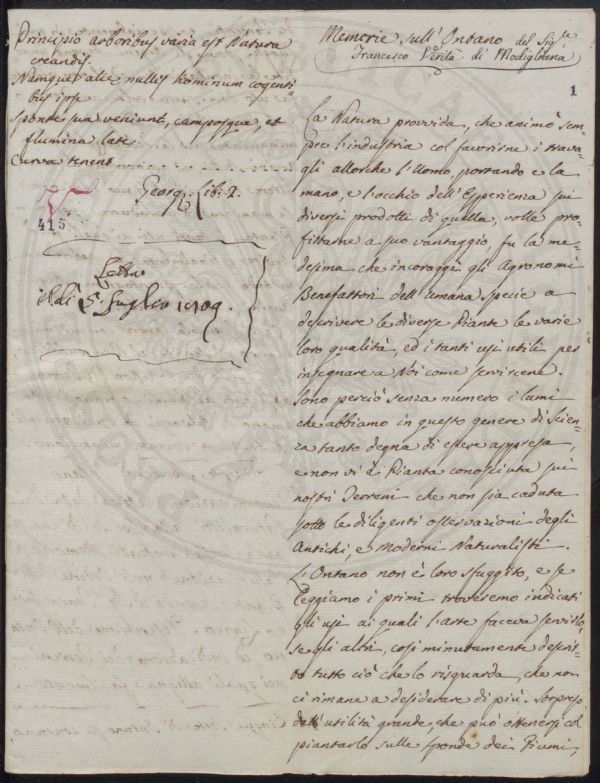 Principio arboribus varia est Natura
creandis.
Namque alie nullis hominum cogenti=
bus ipse
sponte sua veniunt, camposque, et
flumina late
curva tenent
Georg. Lib. 2.
415
Letta
il dì 5 Luglio 1809.
Memorie sull'Ontano del Sig.re
Francesco Verità di Modigliana
1
La Natura provvida, che animò sem=
pre l'industria col favorirne i trava=
gli allorche l'Uomo, portando e la
mano, e l'occhio dell'Esperienza sui
diversi prodotti di quella, volle pro=
fittarne a suo vantaggio, fu la me=
desima che incoraggì gli Agronomi
Benefattori dell'umana specie a
descrivere le diverse Piante le varie
loro qualità, ed i tanti usi utili per
insegnare a Noi come servircene.
Sono perciò senza numero i lumi
che abbiamo in questo genere di Scien=
za tanto degna di essere appresa
e non vi è Pianta conosciuta sui
nostri Terreni che non sia caduta
sotto le diligenti osservazioni degli
Antichi, e Moderni Naturalisti.
L'Ontano non è loro sfuggito, e se
Leggiamo i primi troveremo indicati
gli usi ai quali l'arte faceva servirlo,
se gli altri, così minutamente descrit=
to tutto ciò che lo risguarda, che non
ci rimane a desiderare di più. Sorpreso
dall'utilità grande, che può ottenersi col
piantarlo sulle sponde dei Fiumi,